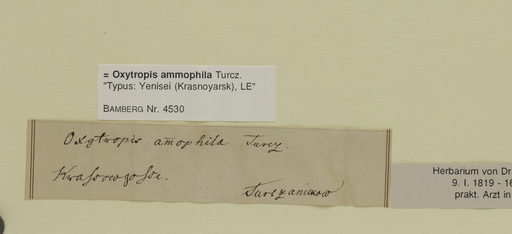 = Oxytropis ammophila Turcz.
"Typus: Yenisei (Krasnoyarsk), LE"
BAMBERG Nr. 4530
Oxytropis am̄ophila Turcz.
Turczaninow
Herbarium von Dr
9. I. 1819 - 16
prakt. Arzt in